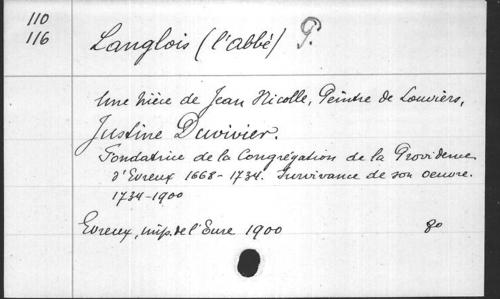 110
116
Langlois (l'abbé) P.
Une nièce de Jean Nicolle, Peintre de Louviers,
Justine Duvivier.
Fondatrice de la Congrégation de la Providence
d'Evreux 1668-1734. Survivance de son oeuvre.
1734-1900
Evreux, imp. de l'Eure 1900
8o